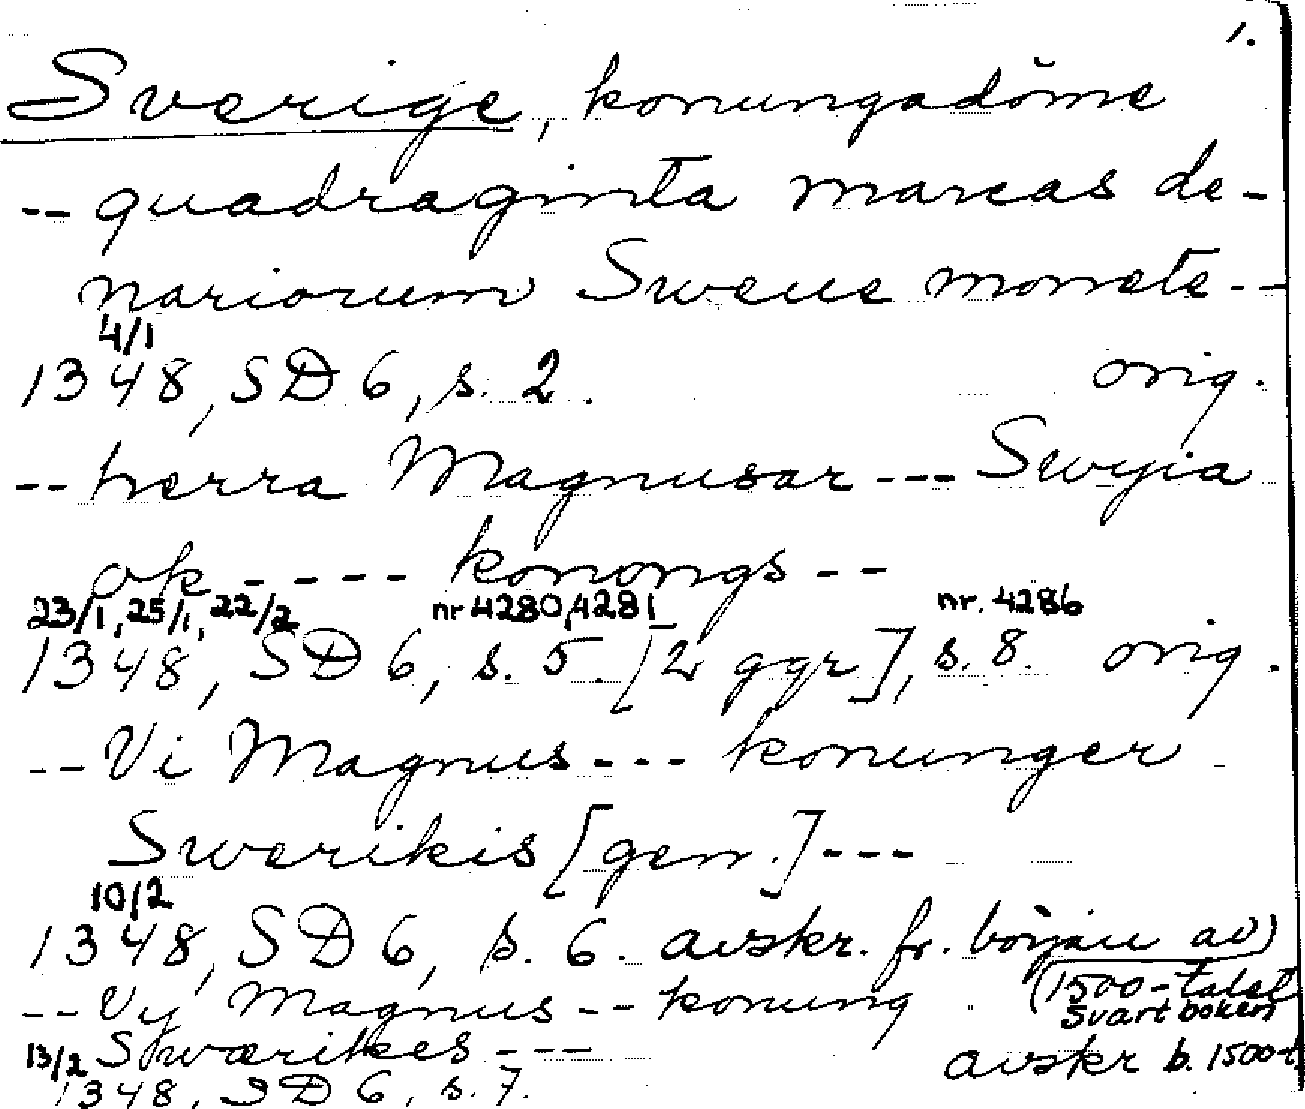 1.
Sverige, konungadöme
-- quadraginta marcas de-
nariorum Sweue monete --
4/1
1348, SD 6, s. 2. orig.
-- herra Magnusar --- Swyia
ok ---- konongs --
23/1, 25/1, 22/2 nr 4280, 4281 nr. 4286
1348, SD 6, s. 5. [2 ggr], s. 8. orig.
-- Vi Magnus --- konunger
Swerikis [gen.] ---
10/2
1348, SD 6, s. 6. avskr. fr. början av
-- Vy Magnus -- konung (1500-talet)
Svartboken
13/2 Swærikes --- avskr b. 1500-t
1348, SD 6, s. 7.